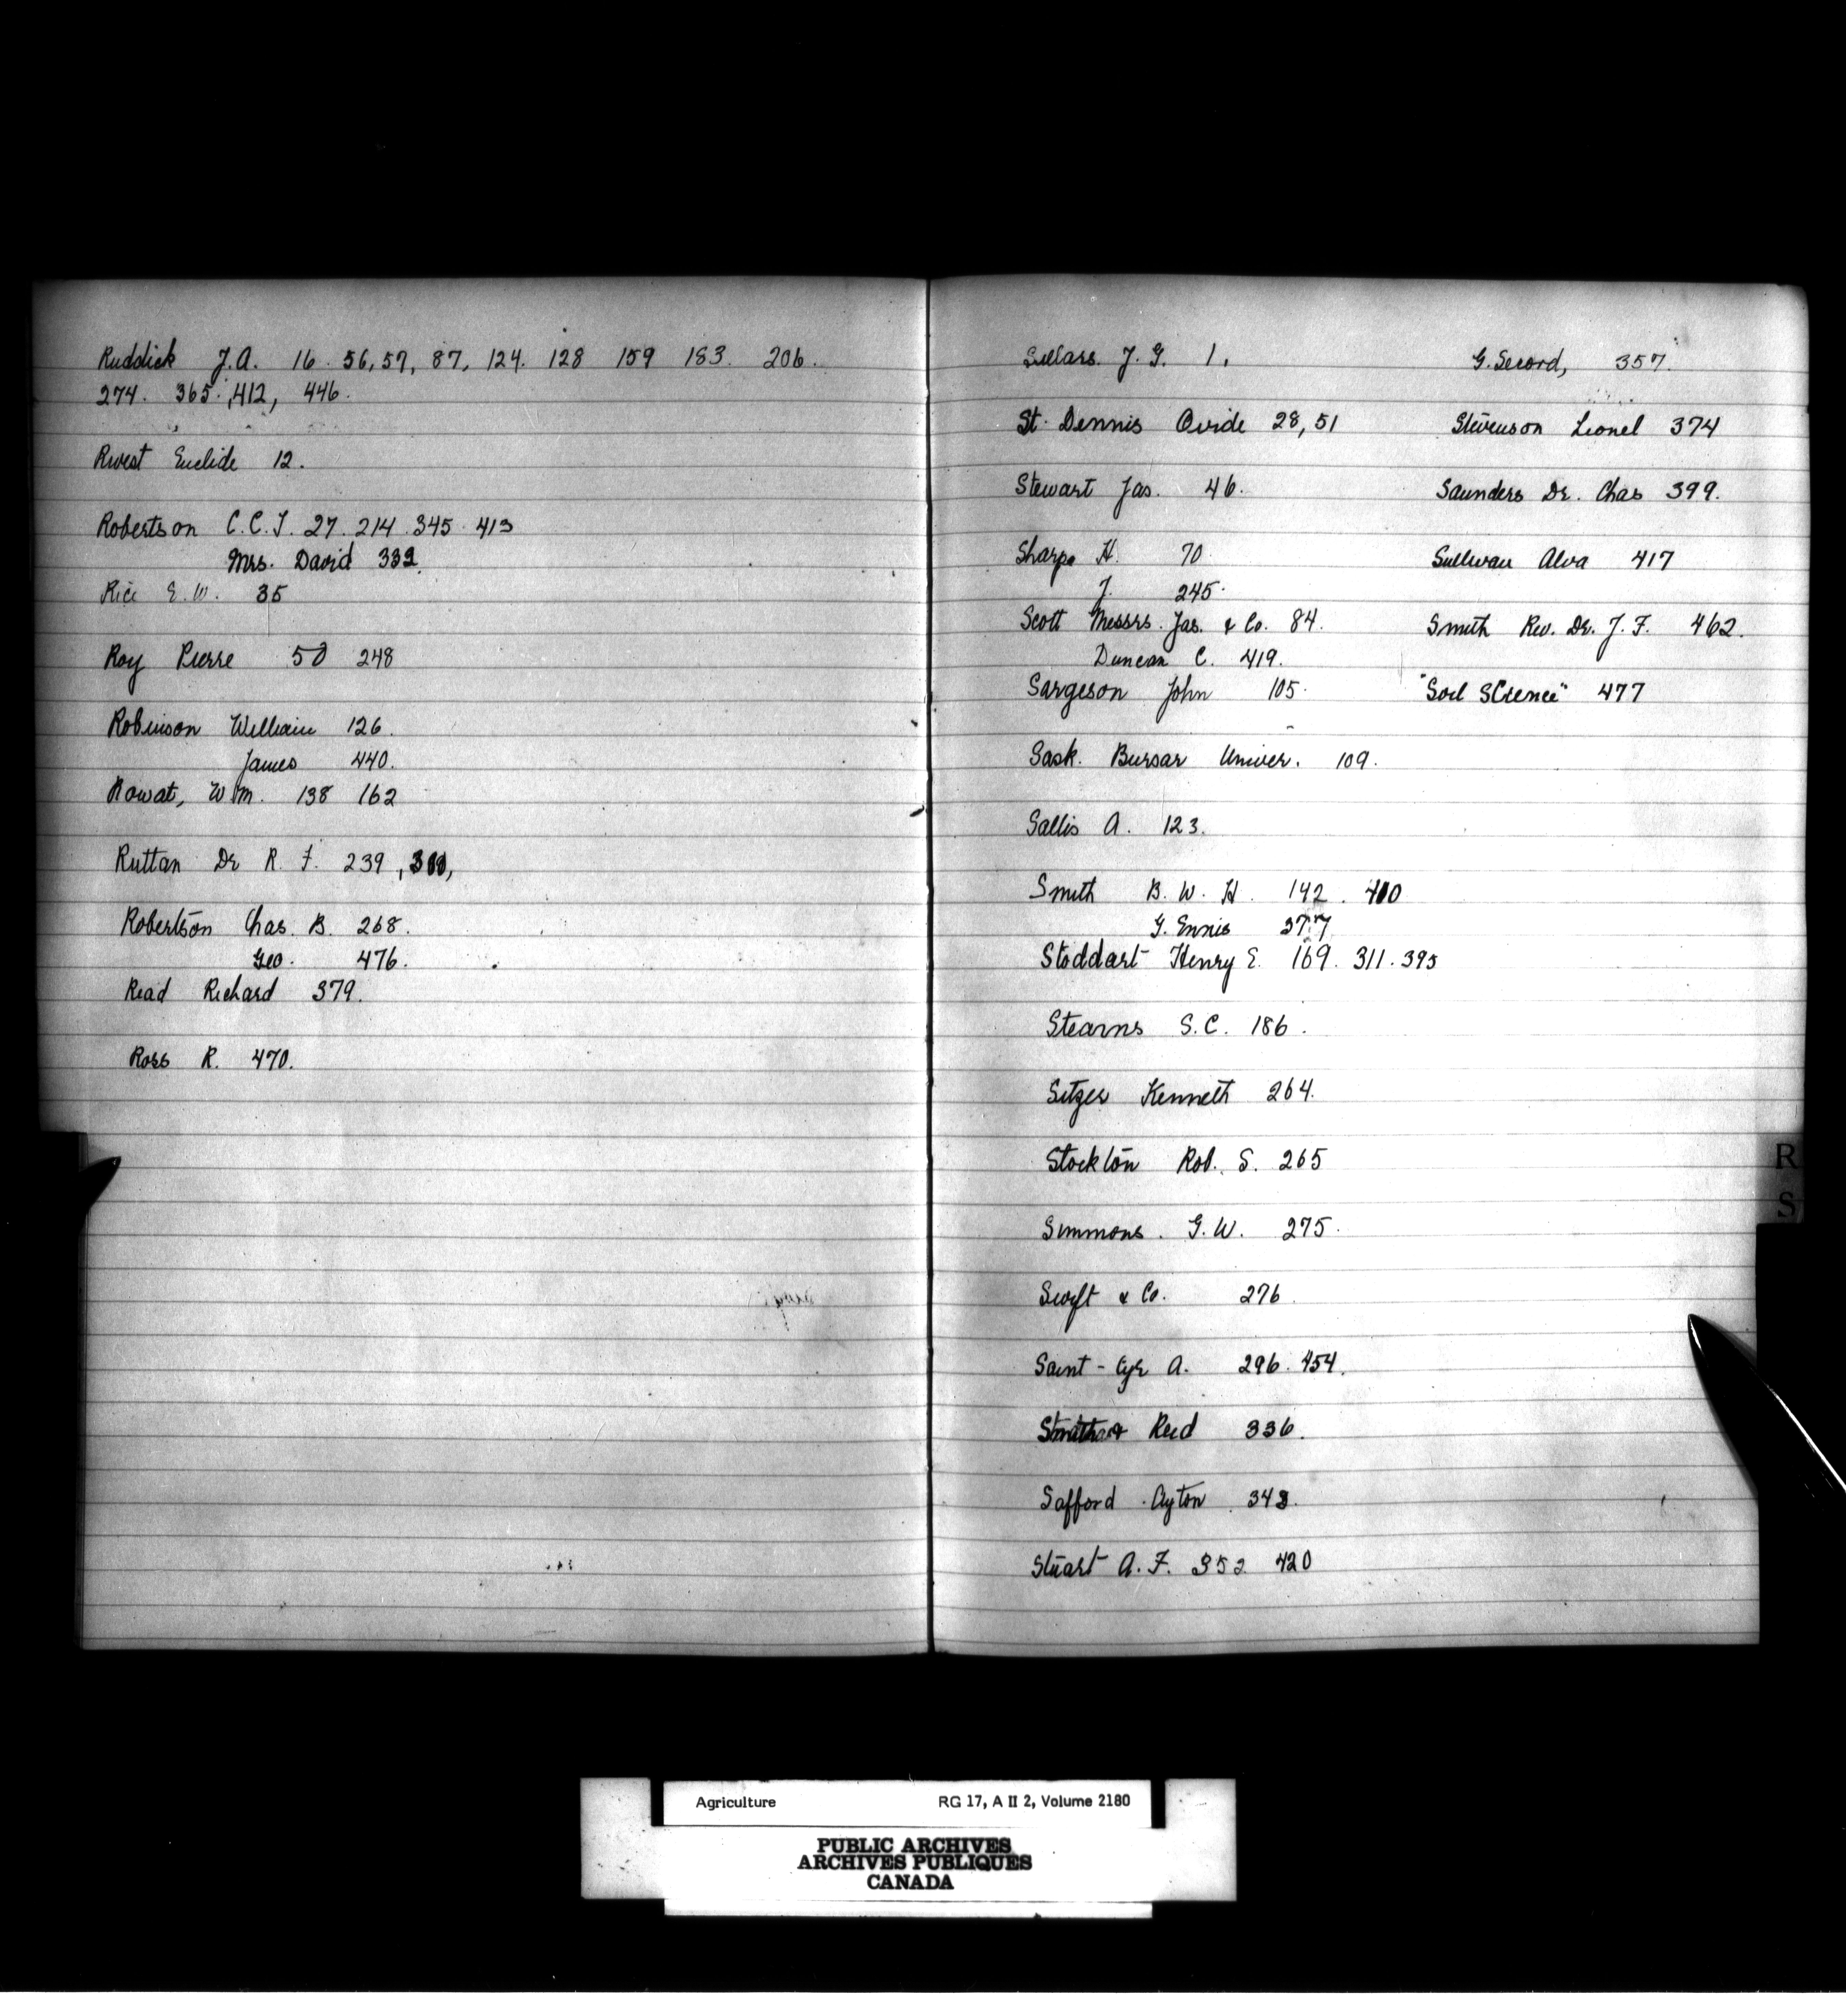 Ruddick J.A. 16. 56, 57, 87, 124. 128 159 183. 206.
274. 365. 412, 446.
Rivest Euclide 12.
Robertson C.C.J. 27. 214. 345. 413
Mrs. David 332.
Rice E.W. 35
Roy Pierre 50 248
Robinson William 126.
James 440.
Rowat, Wm. 138 162
Ruttan Dr R. F. 239,
Robertson Chas. B. 268.
Geo. 476.
Read Richard 379.
Ross R. 470.
Sellars. J. G. 1.
St. Dennis Ovide 28, 51
Stewart Jas. 46.
Sharpe H. 70.
J. 245.
Scott Messrs. Jas. & Co. 84.
Duncan C. 419.
Sargeson John 105.
Sask. Bursar Univer. 109.
Sallis A. 123.
Smith B. W. H. 142. 410
G. Ennis 277
Stoddart Henry E. 169. 311. 395
Stearns S.C. 186.
Sitzer Kenneth 264.
Stockton Rob. S. 265
Simmons. G.W. 275.
Swift & Co. 276
Saint-Cyr A. 296. 454.
Reid 336.
Safford Ayton 348.
Stuart A.F. 352 420
G. Secord, 357.
Stevenson Lionel 374
Saunders Dr. Chas 399.
Sullivan Alva 417
Smith Rev. Dr. J. F. 462.
"Soil Science" 477
R
S
Agriculture RG 17, A II 2, Volume 2180
PUBLIC ARCHIVES
ARCHIVES PUBLIQUES
CANADA